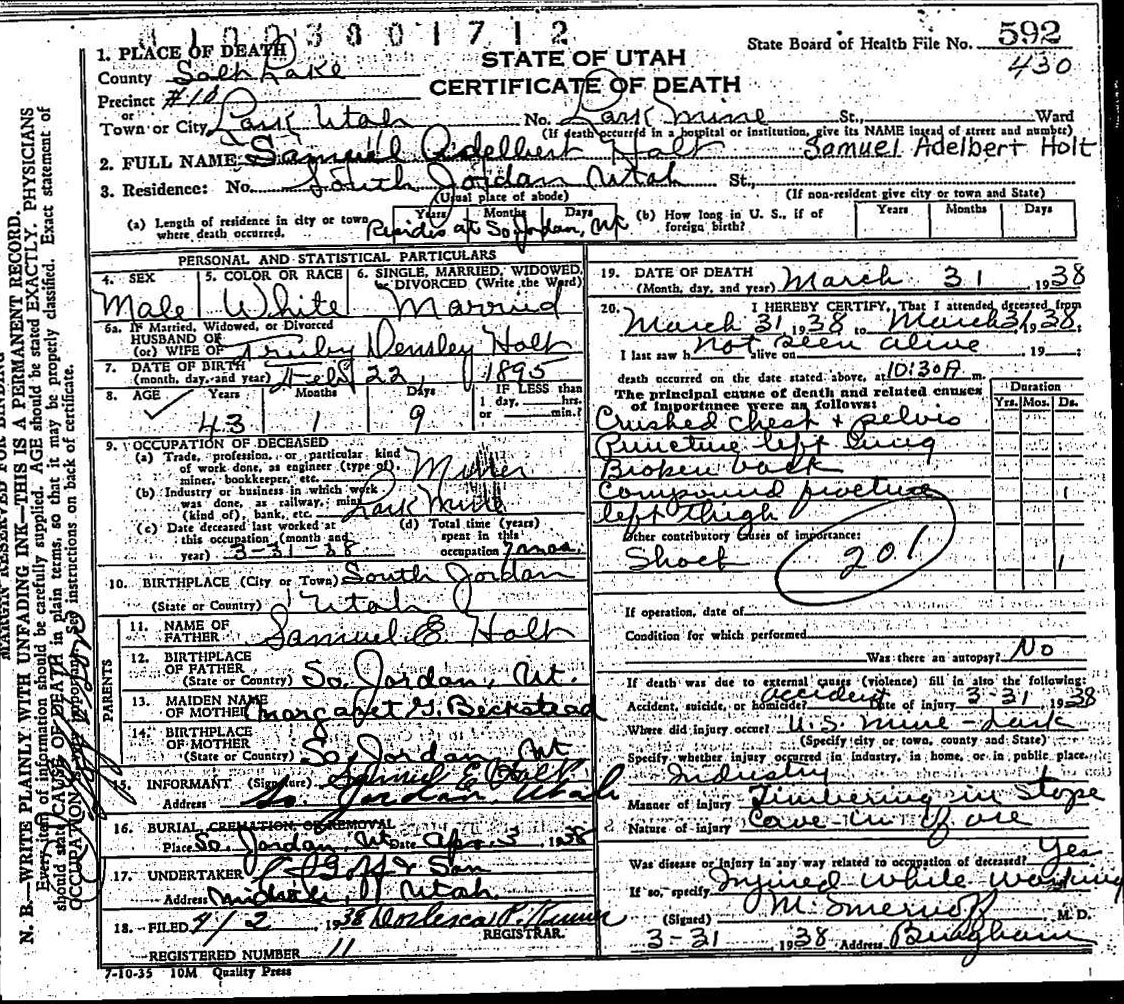 1003001712
State Board of Health File No. 592
430
STATE OF UTAH
CERTIFICATE OF DEATH
1. PLACE OF DEATH
County Salt Lake
Precinct #10
or
Town or City Lark Utah No. Lark Mine St., Ward
(If death occurred in a hospital or institution, give its NAME instead of street and number)
2. FULL NAME Samuel Adelbert Holt Samuel Adelbert Holt
3. Residence: No. South Jordan Utah St.,
(Usual place of abode) (If non-resident give city or town and State)
(a) Length of residence in city or town where death occurred. Years Months Days
Resides at So Jordan, Ut
(b) How long in U. S., if of foreign birth? Years Months Days
PERSONAL AND STATISTICAL PARTICULARS
4. SEX 5. COLOR OR RACE 6. SINGLE, MARRIED, WIDOWED,
or DIVORCED (Write the Word)
Male White Married
6a. If Married, Widowed, or Divorced
HUSBAND OF
(or) WIFE OF Truby Densley Holt
7. DATE OF BIRTH
(month, day, and year) Feb 22, 1895
8. AGE Years Months Days IF LESS than
1 day, hrs.
or min.?
43 1 9
9. OCCUPATION OF DECEASED
(a) Trade, profession, or particular kind
of work done, as engineer (type of),
miner, bookkeeper, etc. Miner
(b) Industry or business in which work
was done, as railway, mine
(kind of), bank, etc. Lark Mine
(c) Date deceased last worked at
this occupation (month and
year) 3-31-38
(d) Total time (years)
spent in this
occupation 7 mos.
10. BIRTHPLACE (City or Town) South Jordan
(State or Country) Utah
PARENTS
11. NAME OF
FATHER Samuel E Holt
12. BIRTHPLACE
OF FATHER
(State or Country) So. Jordan, Ut.
13. MAIDEN NAME
OF MOTHER Margaret G. Beckstead
14. BIRTHPLACE
OF MOTHER
(State or Country) So. Jordan Ut
15. INFORMANT (Signature) Samuel E Holt
Address So. Jordan, Utah
16. BURIAL, CREMATION, OR REMOVAL
Place So. Jordan, Ut Date Apr. 3, 1938
17. UNDERTAKER Goff & Son
Address Midvale, Utah
18. FILED 4/2 1938
REGISTRAR.
REGISTERED NUMBER 11
7-10-35 10M Quality Press
19. DATE OF DEATH
(Month, day, and year) March 31 1938
20. I HEREBY CERTIFY, That I attended deceased from
March 31, 1938 to March 31 1938.
I last saw h not seen alive alive on , 19 ;
death occurred on the date stated above, at 10:30 A m.
The principal cause of death and related causes
of importance were as follows:
Duration
Yrs. Mos. Ds.
Crushed chest + pelvis
Puncture left lung
Broken back
Compound fracture 1
left thigh
Other contributory causes of importance:
Shock 1
201
If operation, date of
Condition for which performed
Was there an autopsy? No
If death was due to external causes (violence) fill in also the following:
Accident, suicide, or homicide? accident Date of injury 3-31 1938
Where did injury occur? U.S. Mine - Lark
(Specify city or town, county and State)
Specify whether injury occurred in industry, in home, or in public place.
Industry
Manner of injury Timbering in stope
Nature of injury Cave-in of ore
Was disease or injury in any way related to occupation of deceased? Yes
If so, specify Injured while working
(Signed) M. M. D.
3-31 1938 Address Bingham
N. B.—WRITE PLAINLY WITH UNFADING INK—THIS IS A PERMANENT RECORD.
Every item of information should be carefully supplied. AGE should be stated EXACTLY. PHYSICIANS
should state CAUSE OF DEATH in plain terms, so that it may be properly classified. Exact statement of
OCCUPATION is very important. See instructions on back of certificate.
MARGIN RESERVED FOR BINDING